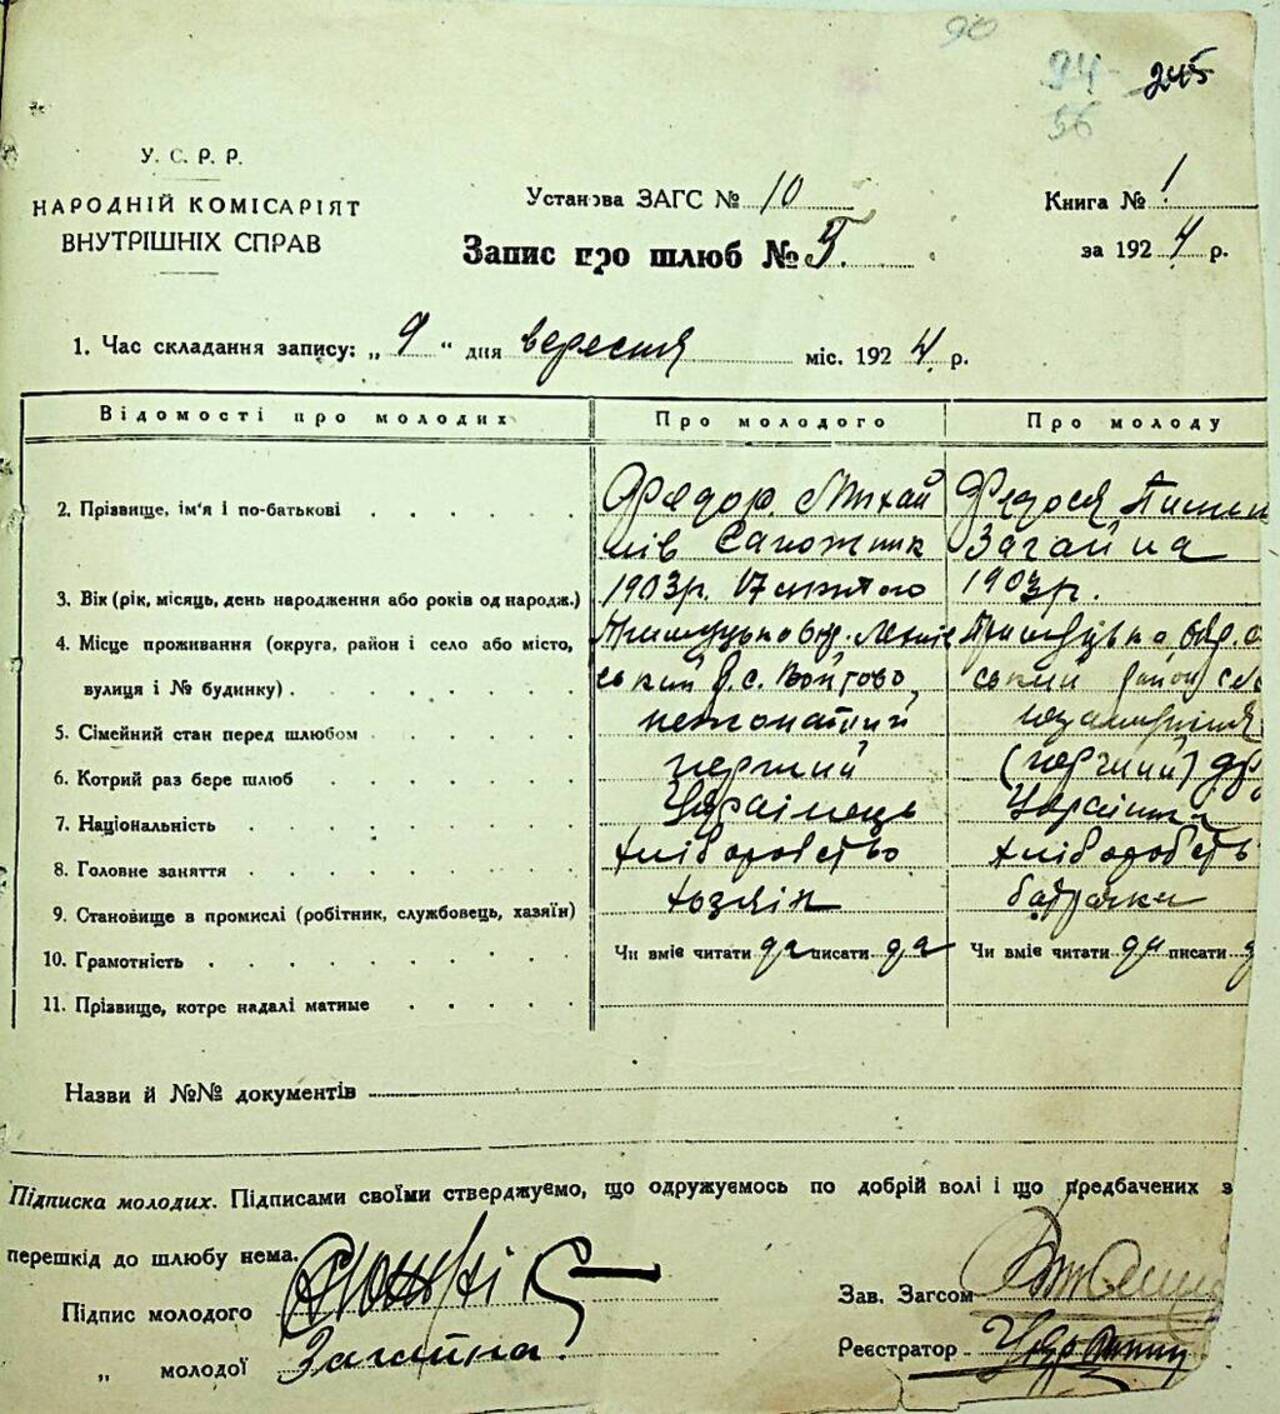 90
94 - 245
56
У. С. Р. Р.
НАРОДНІЙ КОМІСАРІЯТ
ВНУТРІШНІХ СПРАВ
Установа ЗАГС № 10
Книга № 1
Запис про шлюб № 5.
за 1924 р.
1. Час складання запису: „ 9 “ дня вересня міс. 1924 р.
Відомості про молодих Про молодого Про молоду
2. Прізвище, ім'я і по-батькові Федор Михай Федося
лів Сапожник Загайна
3. Вік (рік, місяць, день народження або років од народж.) 1903р. 17 лютого 1903р.
4. Місце проживання (округа, район і село або місто,
вулиця і № будинку) ський р. с. Войтово, ський район
5. Сімейний стан перед шлюбом нежонатий
6. Котрий раз бере шлюб перший (перший)
7. Національність Українець Українка
8. Головне заняття хліборобство хліборобств
9. Становище в промислі (робітник, службовець, хазяїн) хозяїн батрачка
10. Грамотність Чи вміє читати да писати да Чи вміє читати да писати
11. Прізвище, котре надалі матиме
Назви й №№ документів
Підписка молодих. Підписами своїми стверджуємо, що одружуємось по добрій волі і що предбачених з
перешкід до шлюбу нема.
Підпис молодого
Зав. Загсом
„ молодої Загайна.
Реєстратор